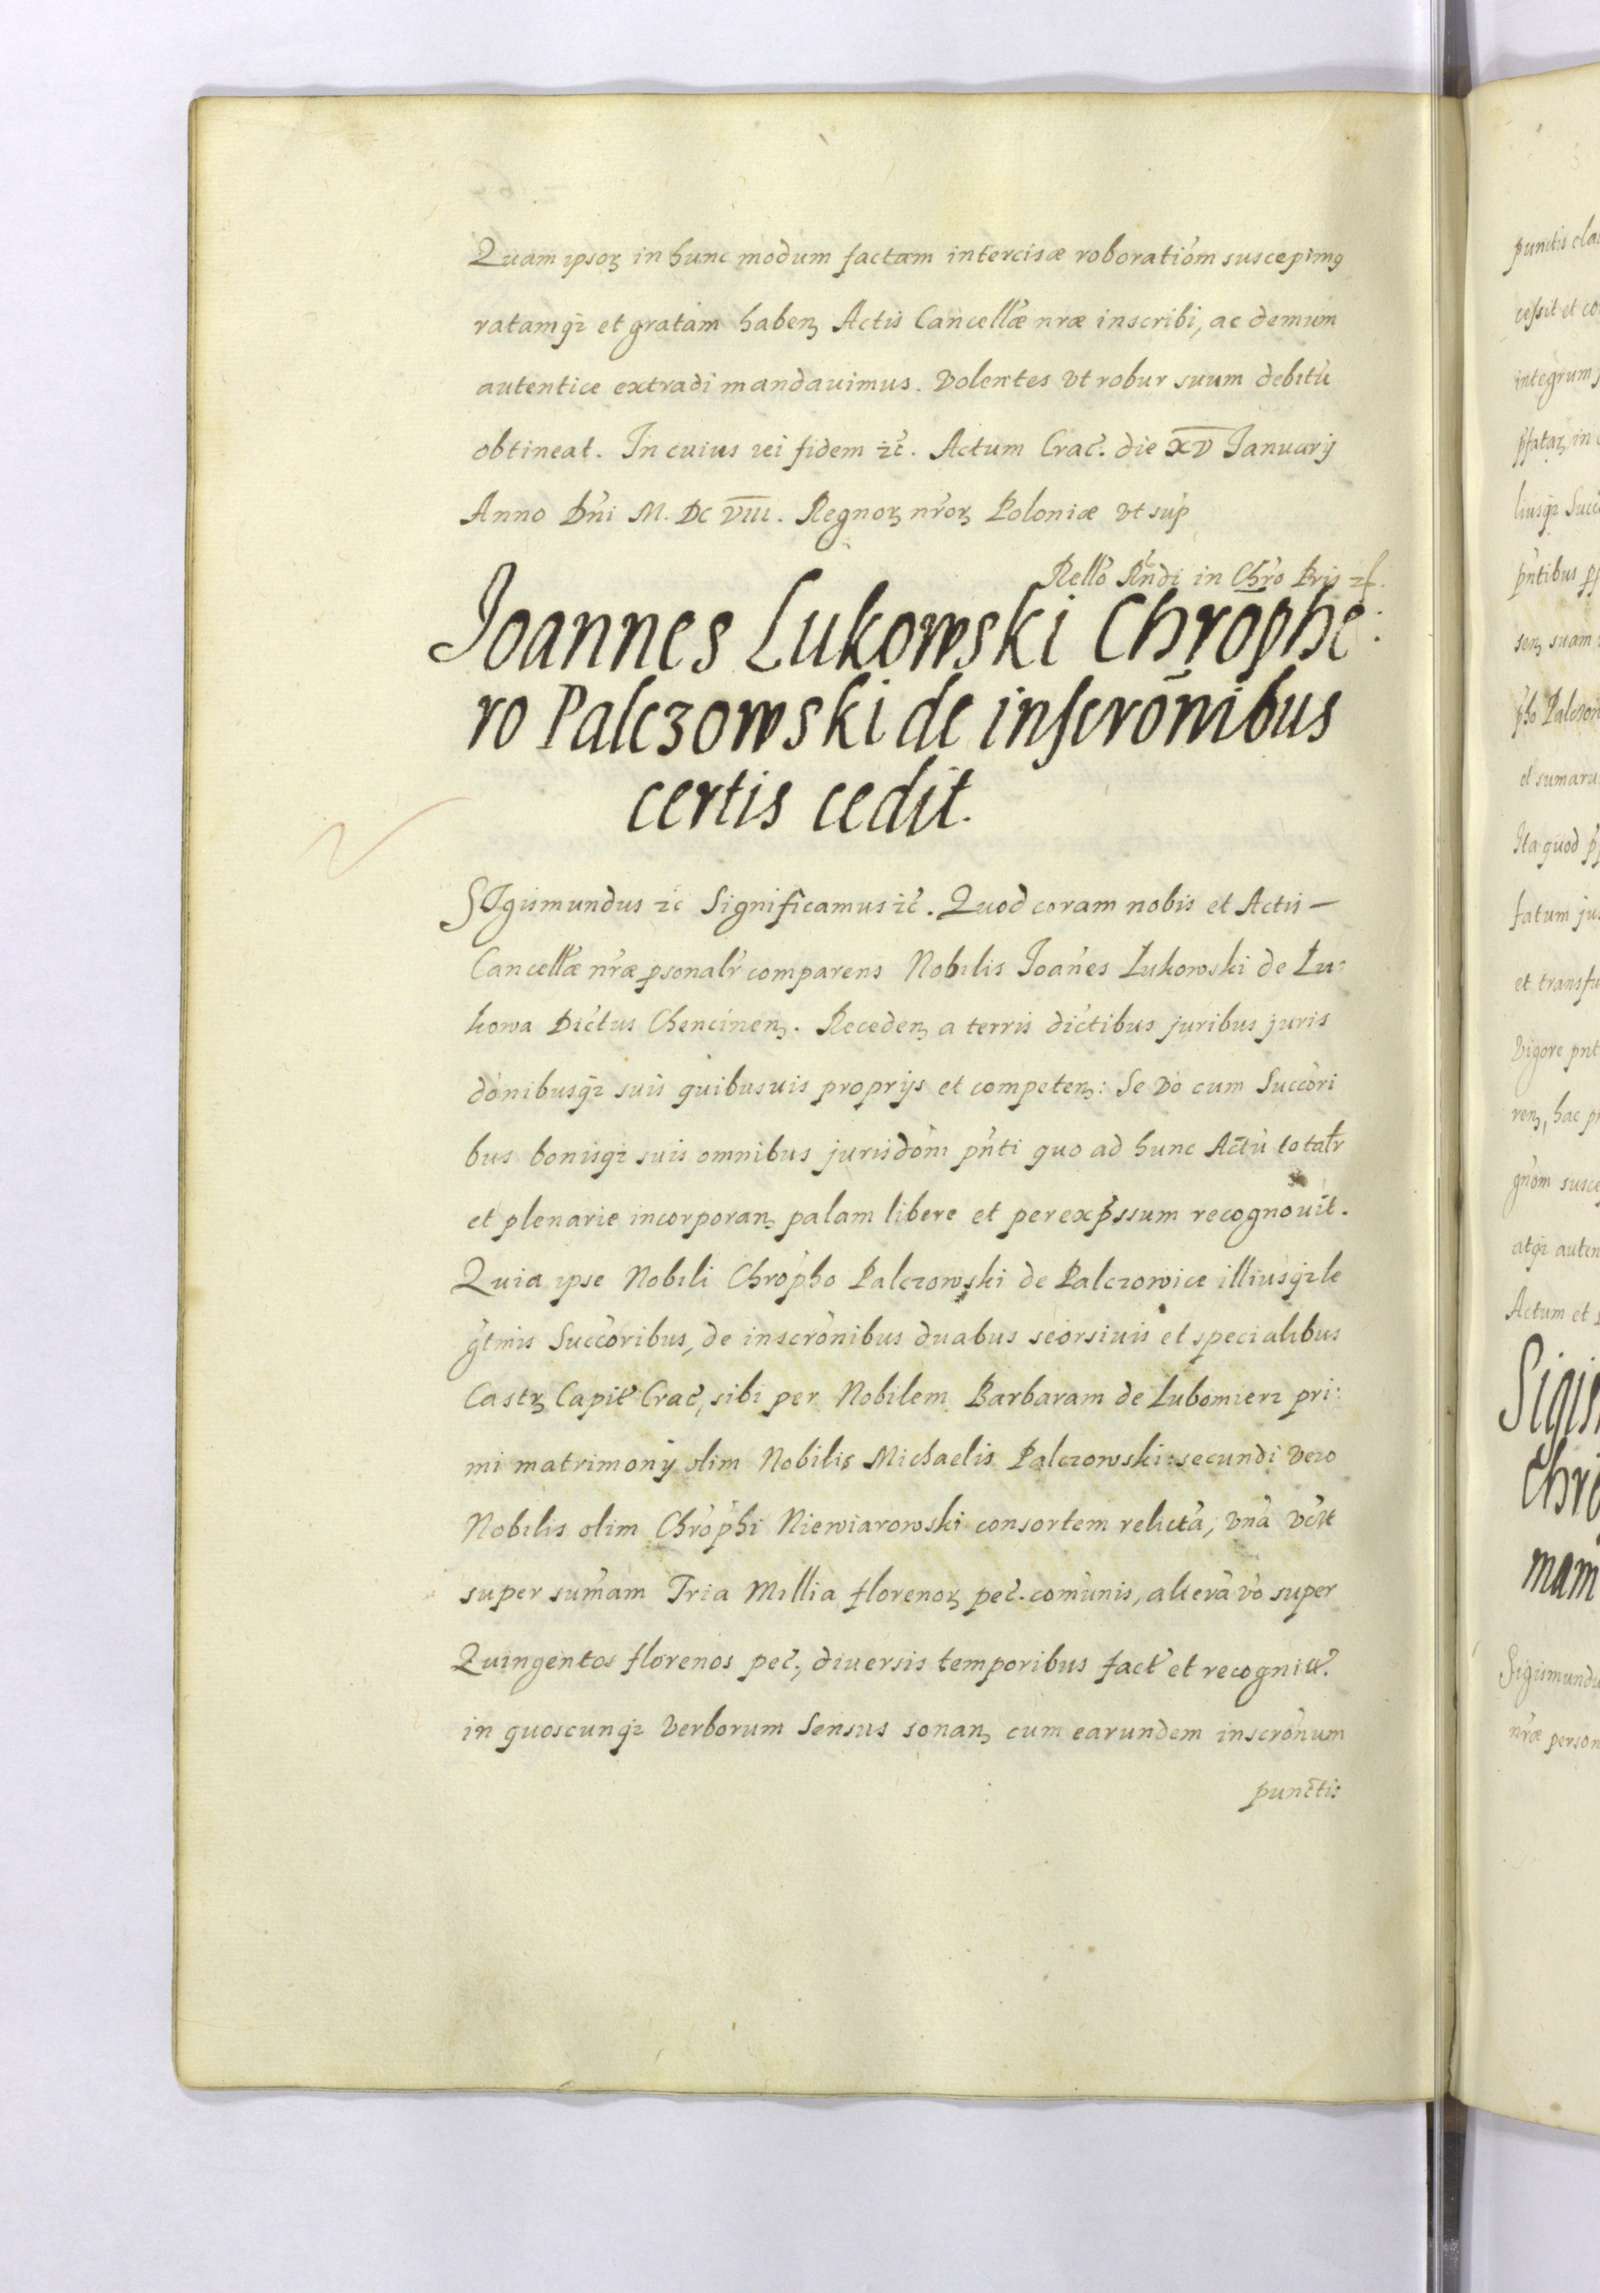 Quam ipsoꝝ in hunc modum factam intercisæ roboratiōm suscepimꝰ
ratamqꝫ et gratam habenꝫ Actis Cancellæ nr̄æ inscribi, ac demum
autentice extradi mandauimus. Volentes vt robur suum debitū
obtineat. In cuius rei fidem ꝛc̄. Actum Crac̄. die XV Ianuarij
Anno Dn̄i M. DC VIII. Regnoꝝ nr̄oꝝ Poloniæ vt sup̄
Rellō Rn̄di in Chr̄o Pris ꝛc.
Ioannes Lukowski Chrōphe:
ro Palczowski de inscrōnibus
certis cedit.
SIgismundus ꝛc Significamus ꝛc̄. Quod coram nobis et Actis –
Cancellæ nr̄æ ꝑsonalr̄ comparens Nobilis Ioan̄es Lukowski de Lu:
kowa Dictus Chencinenꝫ. Recedenꝫ a terris dictibus juribus juris
dōnibusqꝫ suis quibusuis proprijs et competenꝫ: Se vō cum Succōri
bus bonisqꝫ suis omnibus jurisdōni pn̄ti quo ad hunc Actū totalr̄
et plenarie incorporanꝫ palam libere et per exp̄ssum recognouit.
Quia ipse Nobili Chrōpho Palczowski de Palczowice illiusqꝫ le
gt̄mis Succōribus, de inscrōnibus duabus seorsiuis et specialibus
Castꝝ Capit̄ Crac̄, sibi per Nobilem Barbaram de Lubomierz pri:
mi matrimonij olim Nobilis Michaelis Palczowski: secundi vero
Nobilis olim Chrōphi Niewiarowski consortem relictā, vnā vc̄lt
super sum̄am Tria Millia florenoꝝ pec̄. comūnis, alterā vō super
Quingentos florenos pec̄, diuersis temporibus fact̄ et recognit̄.
in quoscunqꝫ verborum sensus sonanꝫ cum earundem inscrōnum
punctis
punctis cla
cessit et co
integrum
p̄fataꝝ in
liusqꝫ Succ
pn̄tibus
senꝫ suam
pho Palczow
et sumaru
Ita quod
fatum ju
et transfu
Vigore pnt
renꝫ, hac
gnōm susce
atqꝫ auten
Actum et
Sigis
Chrō
mani
Sigismundu
nr̄æ person